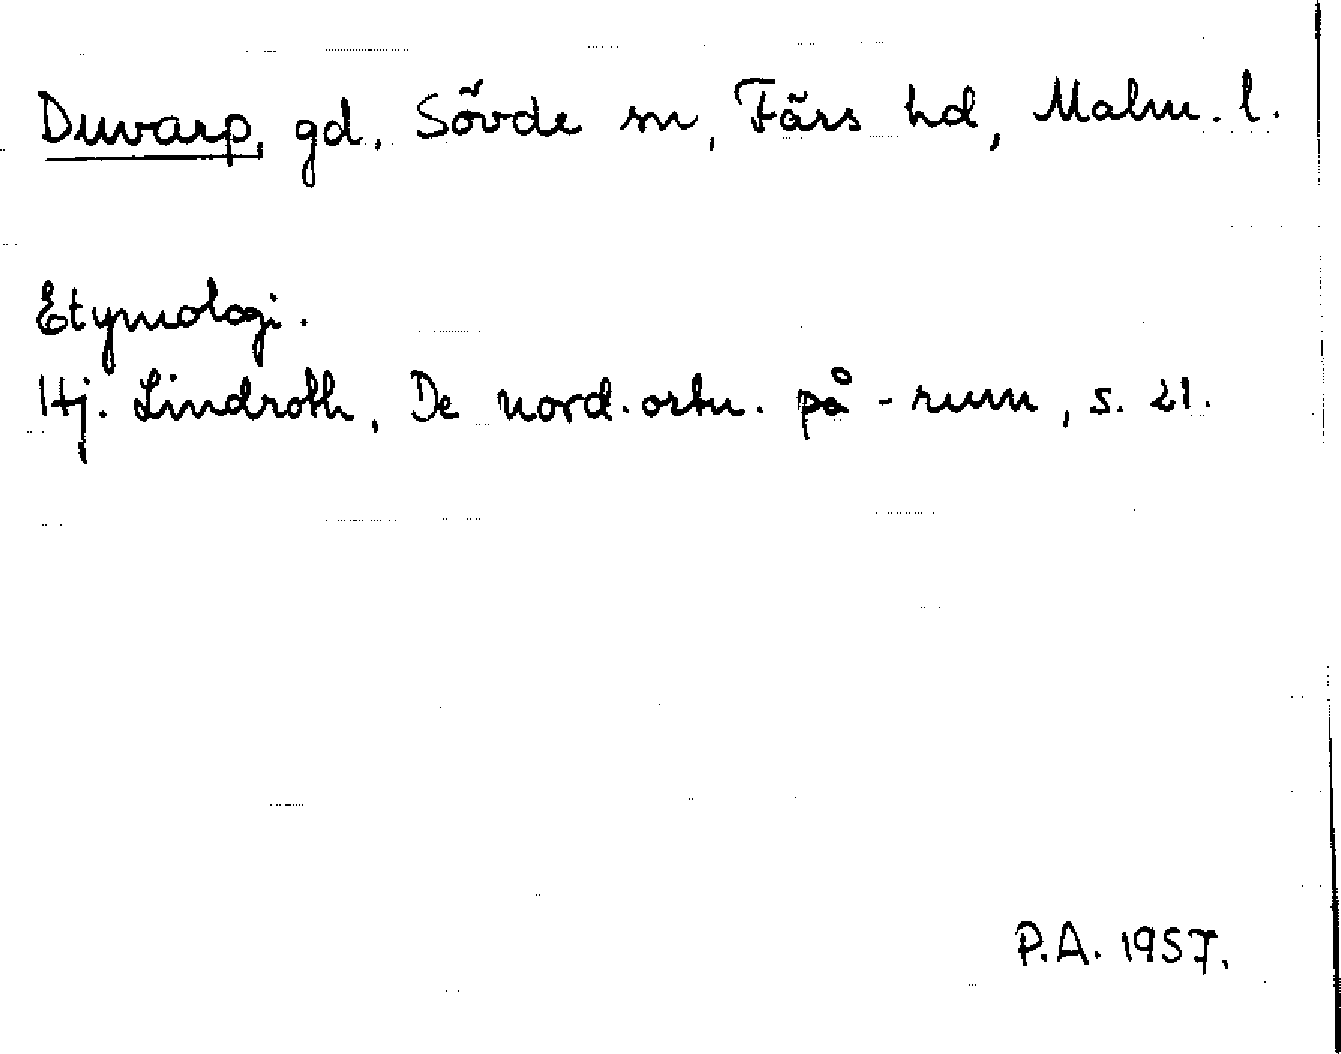 Duvarp, gd, Sövde sn, Färs hd, Malm. l.
Etymologi.
Hj. Lindroth, De nord. ortn. på -rum, s. 21.
P.A. 1957.